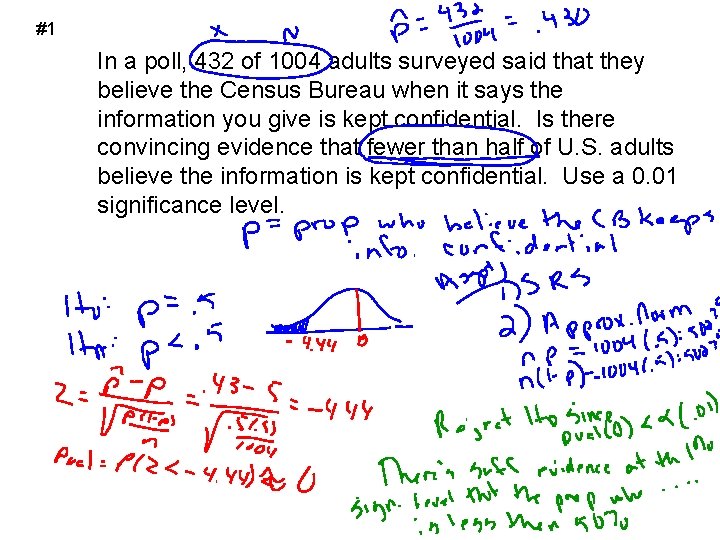 #1
x n p̂ = 432/1004 = .430
In a poll, 432 of 1004 adults surveyed said that they
believe the Census Bureau when it says the
information you give is kept confidential. Is there
convincing evidence that fewer than half of U.S. adults
believe the information is kept confidential. Use a 0.01
significance level.
p = prop who believe the CB keeps
info. confidential
Ho: p = .5
HA: p < .5
-4.44 0
1) SRS
2) Approx. Norm
np = 1004(.5) = 502
n(1-p) = 1004(.5) = 502
Z = (p̂ - p)/√(p(1-p)/n) = (.43 - .5)/√(.5(.5)/1004) = -4.44
pval = P(Z < -4.44) ≈ 0
Reject Ho since
pval(0) < α(.01)
There's suff evidence at the 1%
sign. level that the prop who ....
is less than 50%